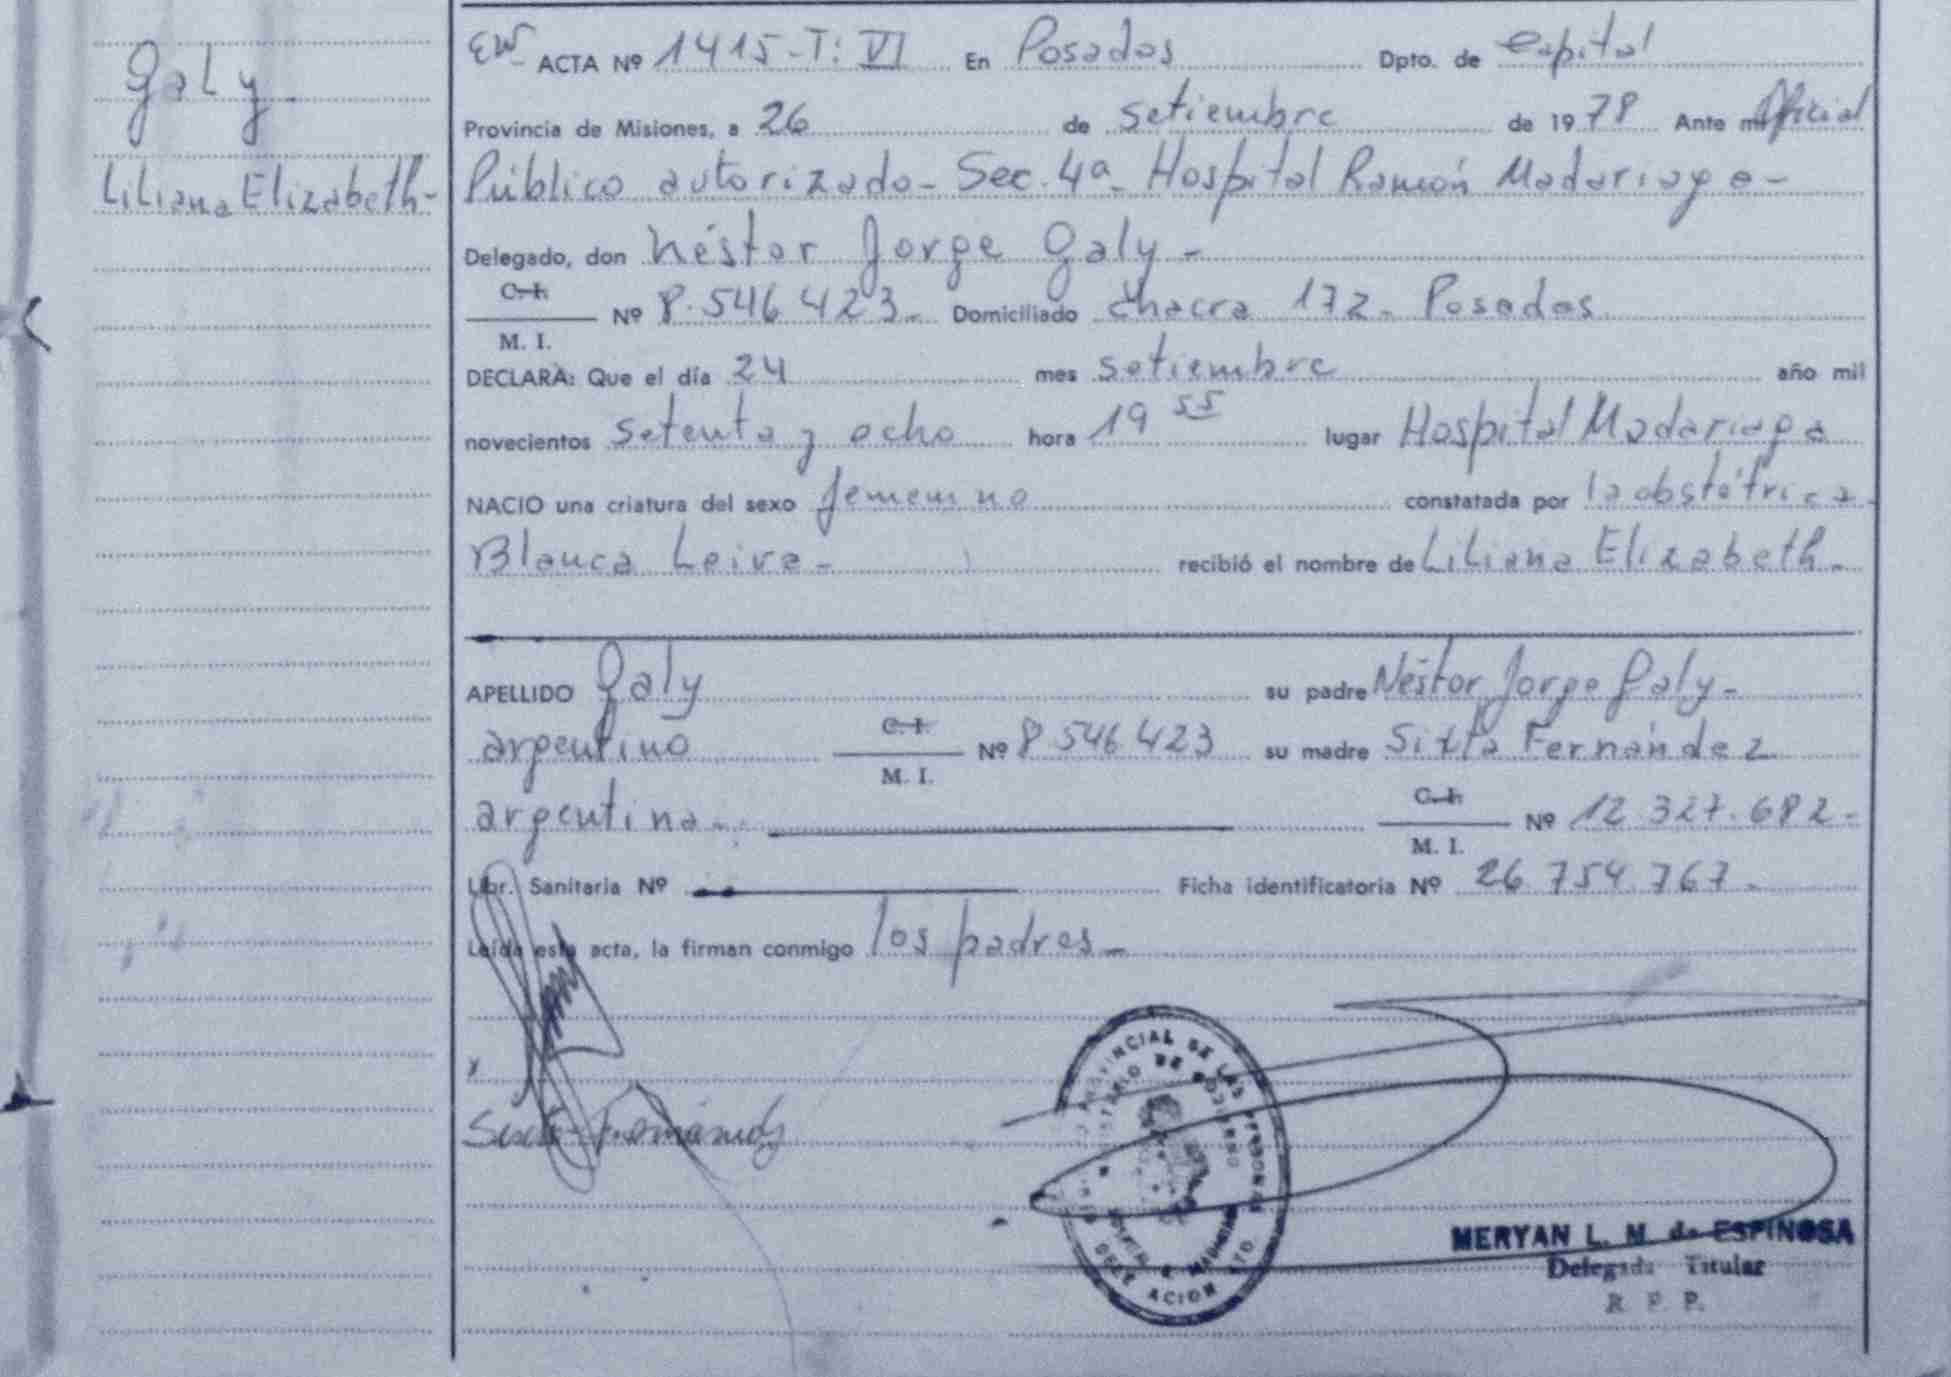 Galy
Liliana Elizabeth-
ACTA Nº 1415-T: VI En Posadas Dpto. de Capital
Provincia de Misiones, a 26 de setiembre de 1978 Ante mí Oficial
Público autorizado- Sec. 4a- Hospital Ramón Madariaga-
Delegado, don Néstor Jorge Galy-
C. I.
Nº 8.546.423- Domiciliado chacra 172- Posadas
M. I.
DECLARA: Que el día 24 mes setiembre año mil
novecientos setenta y ocho hora 19 55 lugar Hospital Madariaga
NACIO una criatura del sexo femenino constatada por la obstétrica
Blanca Leiva- recibió el nombre de Liliana Elizabeth-
APELLIDO Galy su padre Néstor Jorge Galy-
C. I.
argentino Nº 8.546.423 su madre Sixta Fernández
M. I.
C. I.
argentina- Nº 12.327.682-
M. I.
Libr. Sanitaria Nº Ficha identificatoria Nº 26.754.767-
Leída esta acta, la firman conmigo los padres-
MERYAN L. M. de ESPINOSA
Delegada Titular
R. P. P.